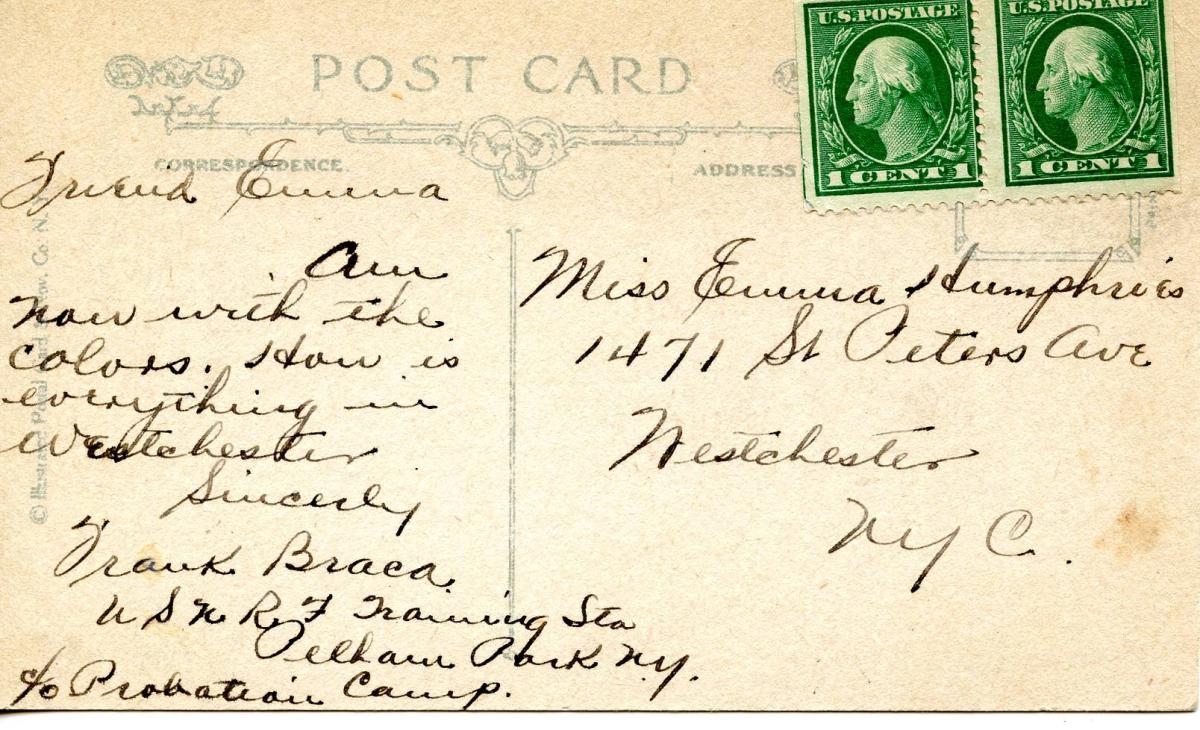 U.S. POSTAGE
1 CENT 1
U.S. POSTAGE
1 CENT 1
POST CARD
CORRESPONDENCE
ADDRESS
Friend Emma
Am
now with the
colors. How is
everything in
Westchester
Sincerly
Frank Braca
U S N R F Training Sta
Pelham Park NY.
c/o Probation Camp.
Miss Emma Humphries
1471 St Peters Ave
Westchester
NY C.
© Illustrated Postal Card Nov. Co. N.